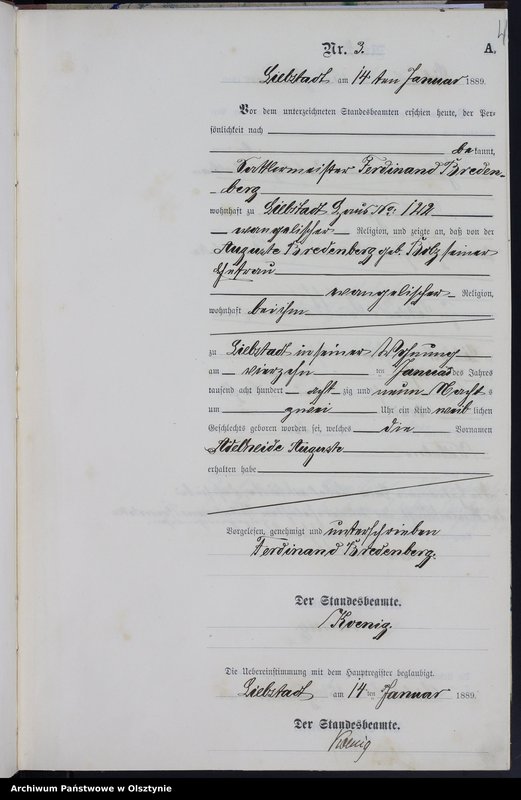 4
Nr. 3.
A.
Liebstadt am 14 ten Januar 1889.
Vor dem unterzeichneten Standesbeamten erschien heute, der Per-
sönlichkeit nach
be kannt,
Sattlermeister Ferdinand Breden-
berg
wohnhaft zu Liebstadt Haus No: 122
evangelischer Religion, und zeigte an, daß von der
Auguste Bredenberg geb. Bolz seiner
Ehefrau
evangelischer Religion,
wohnhaft bei ihm
zu Liebstadt in seiner Wohnung
am vierzehn ten Januar des Jahres
tausend acht hundert acht zig und neun Nacht s
um zwei Uhr ein Kind weib lichen
Geschlechts geboren worden sei, welches die Vornamen
Adelheide Auguste
erhalten habe
Vorgelesen, genehmigt und unterschrieben
Ferdinand Bredenberg.
Der Standesbeamte.
Koenig.
Die Uebereinstimmung mit dem Hauptregister beglaubigt.
Liebstadt am 14 ten Januar 1889.
Der Standesbeamte.
Koenig
Archiwum Państwowe w Olsztynie